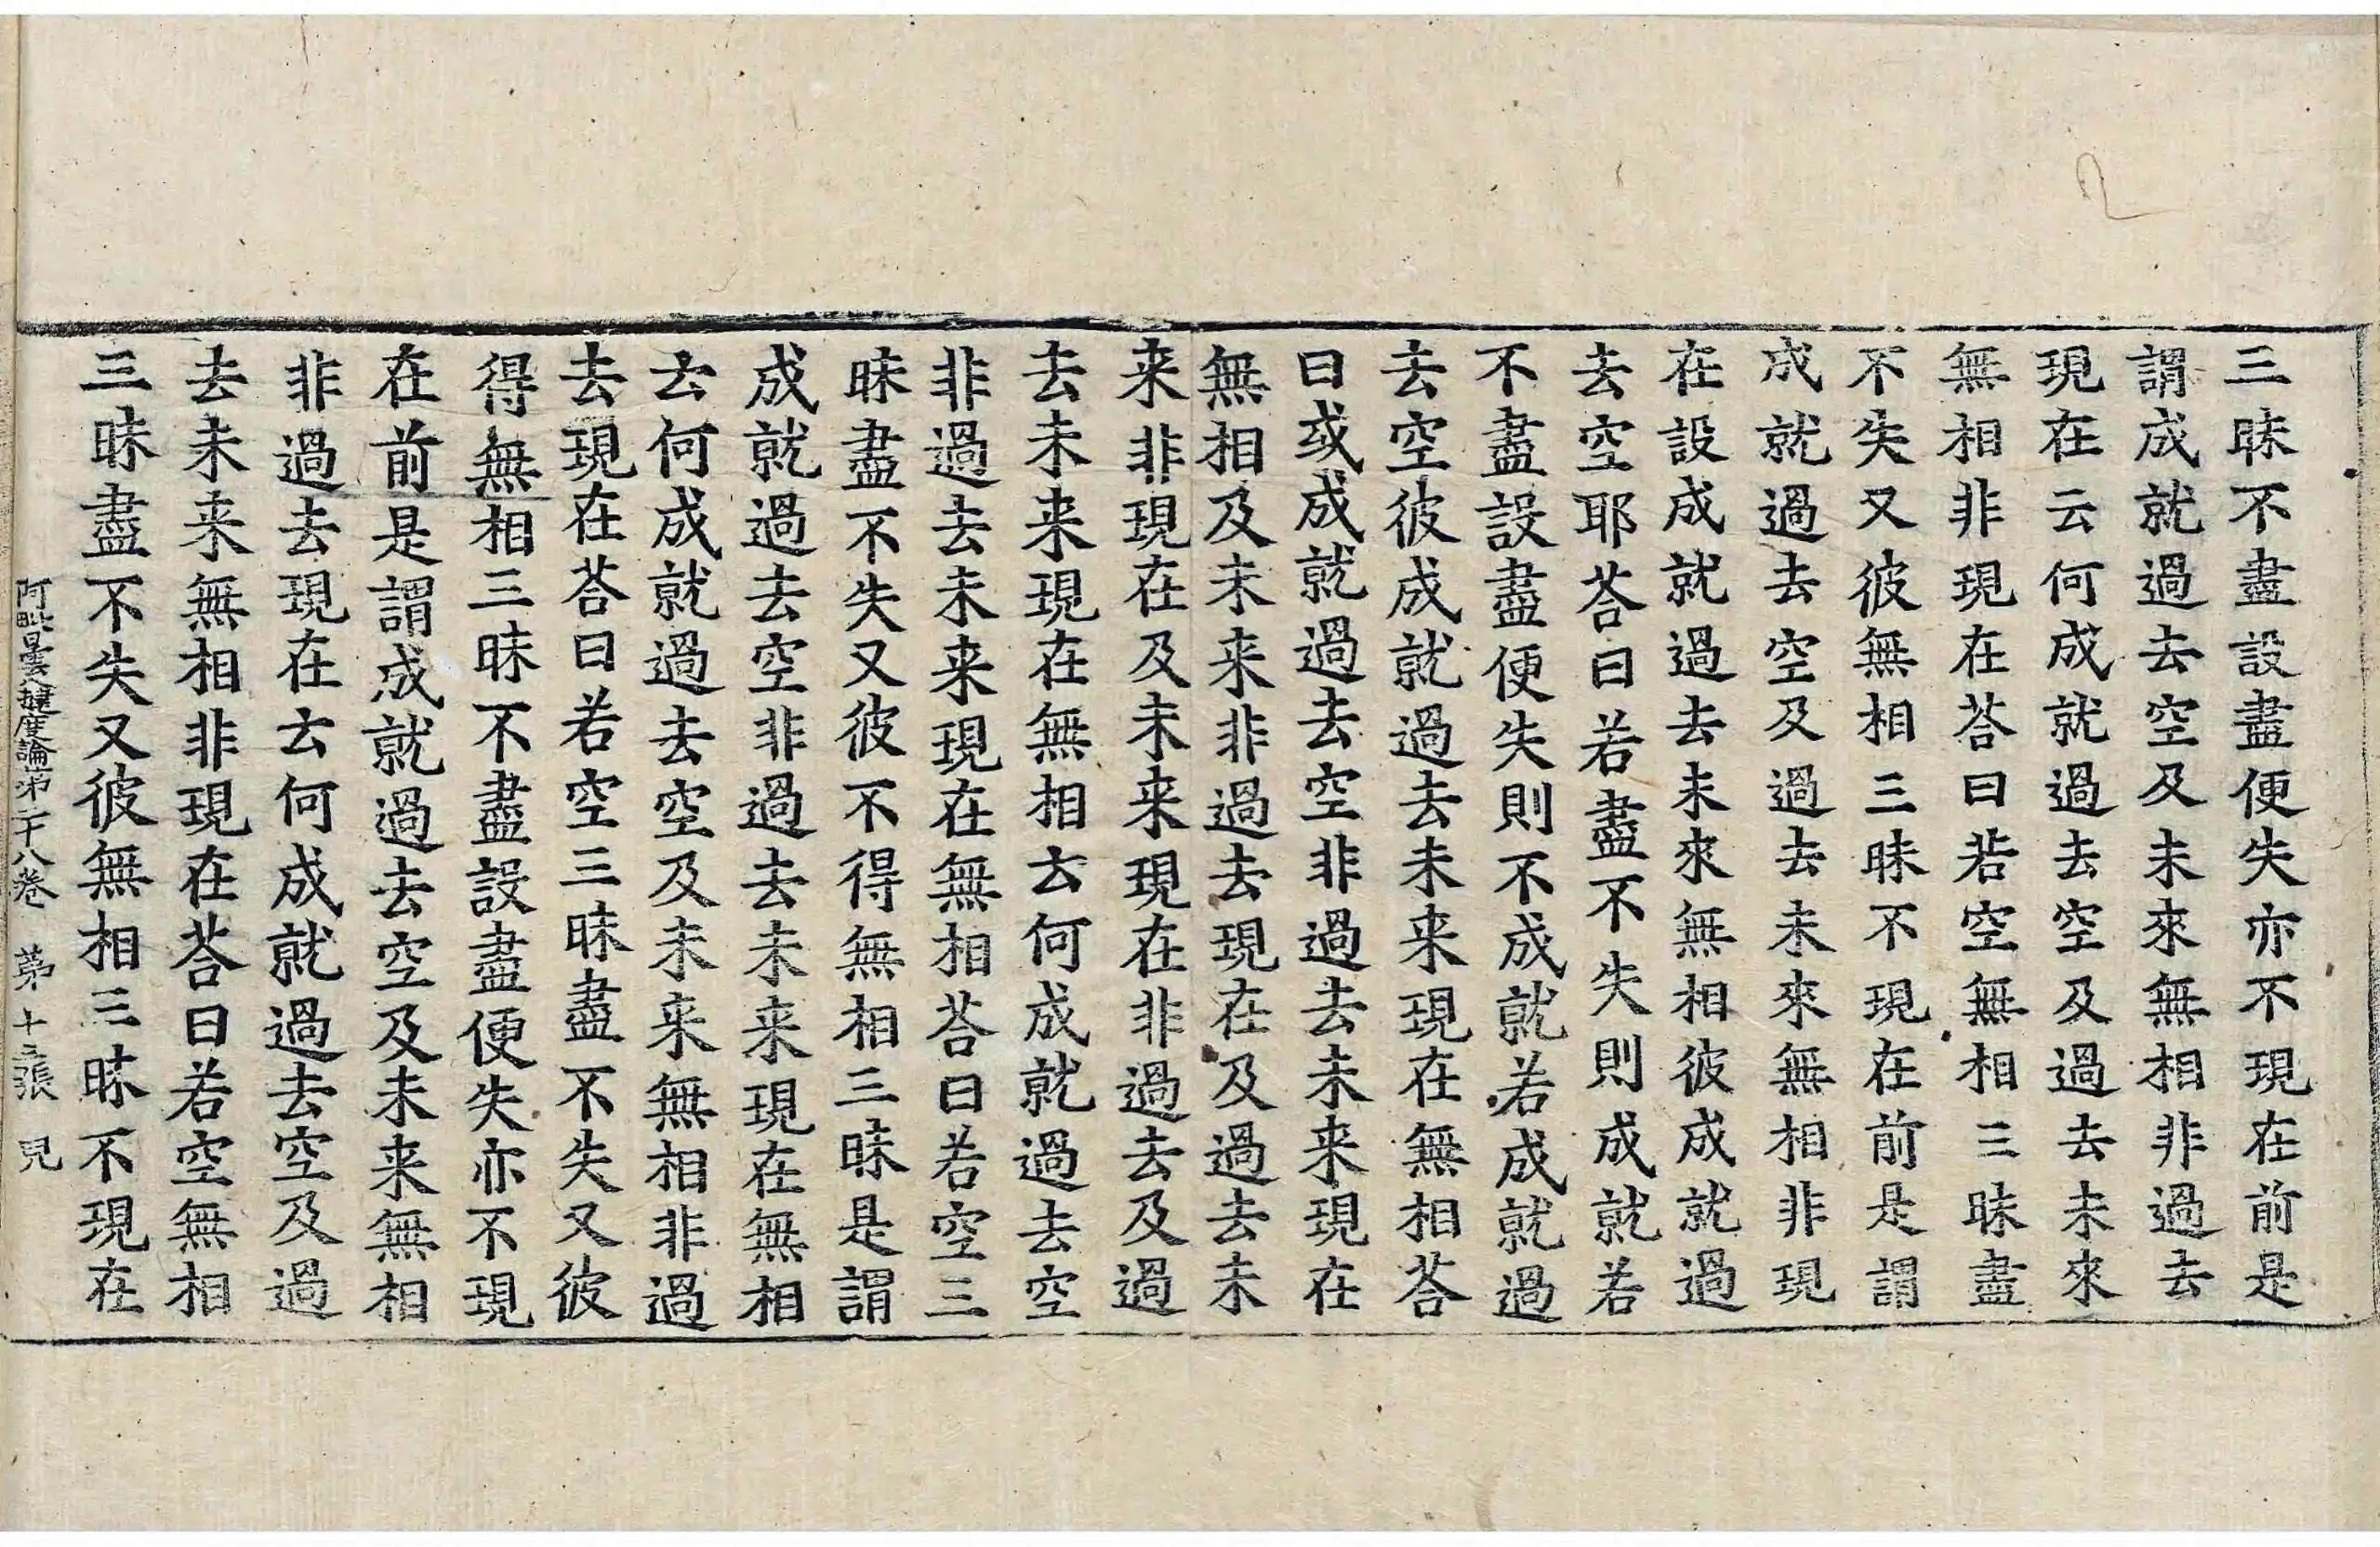 三昧不盡設盡便失亦不現在前是
謂成就過去空及未來無相非過去
現在云何成就過去空及過去未來
無相非現在荅曰若空無相三昧盡
不失又彼無相三昧不現在前是謂
成就過去空及過去未來無相非現
在設成就過去未來無相彼成就過
去空耶荅曰若盡不失則成就若
不盡設盡便失則不成就若成就過
去空彼成就過去未来現在無相荅
曰或成就過去空非過去未来現在
無相及未来非過去現在及過去未
来非現在及未来現在非過去及過
去未来現在無相云何成就過去空
非過去未来現在無相荅曰若空三
昧盡不失又彼不得無相三昧是謂
成就過去空非過去未来現在無相
云何成就過去空及未来無相非過
去現在荅曰若空三昧盡不失又彼
得無相三昧不盡設盡便失亦不現
在前是謂成就過去空及未来無相
非過去現在云何成就過去空及過
去未来無相非現在荅曰若空無相
三昧盡不失又彼無相三昧不現在
阿毗曇八揵度論第二十八卷 苐十三張 見